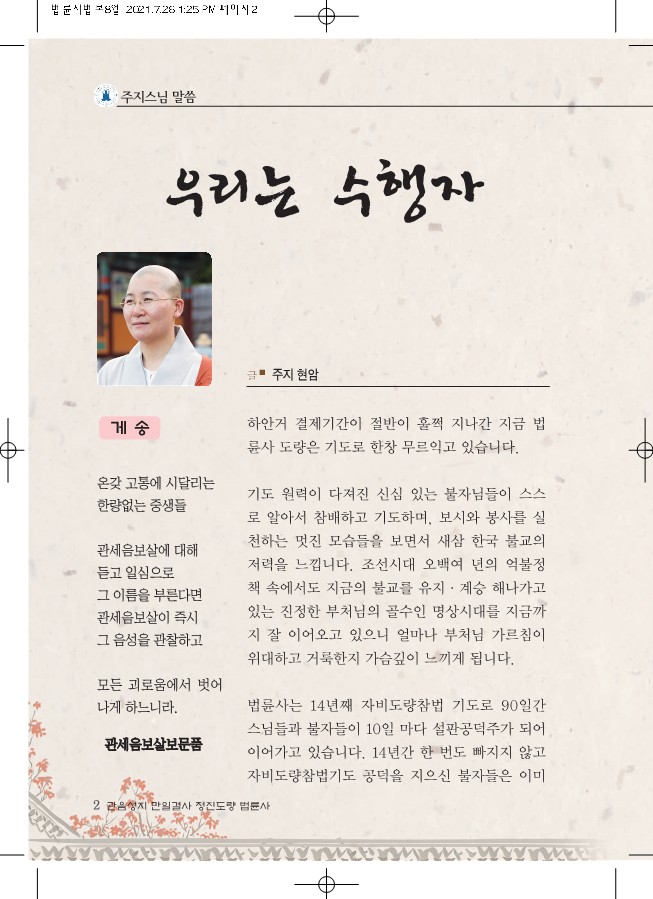 법륜사법보8월 2021.7.26 1:25 PM 페이지2
주지스님 말씀
우리는 수행자
글 ■ 주지 현암
게 송
온갖 고통에 시달리는
한량없는 중생들
관세음보살에 대해
듣고 일심으로
그 이름을 부른다면
관세음보살이 즉시
그 음성을 관찰하고
모든 괴로움에서 벗어
나게 하느니라.
관세음보살보문품
하안거 결제기간이 절반이 훌쩍 지나간 지금 법
륜사 도량은 기도로 한창 무르익고 있습니다.
기도 원력이 다져진 신심 있는 불자님들이 스스
로 알아서 참배하고 기도하며, 보시와 봉사를 실
천하는 멋진 모습들을 보면서 새삼 한국 불교의
저력을 느낍니다. 조선시대 오백여 년의 억불정
책 속에서도 지금의 불교를 유지·계승 해나가고
있는 진정한 부처님의 골수인 명상시대를 지금까
지 잘 이어오고 있으니 얼마나 부처님 가르침이
위대하고 거룩한지 가슴깊이 느끼게 됩니다.
법륜사는 14년째 자비도량참법 기도로 90일간
스님들과 불자들이 10일 마다 설판공덕주가 되어
이어가고 있습니다. 14년간 한 번도 빠지지 않고
자비도량참법기도 공덕을 지으신 불자들은 이미
2 관음성지 만일결사 정진도량 법륜사